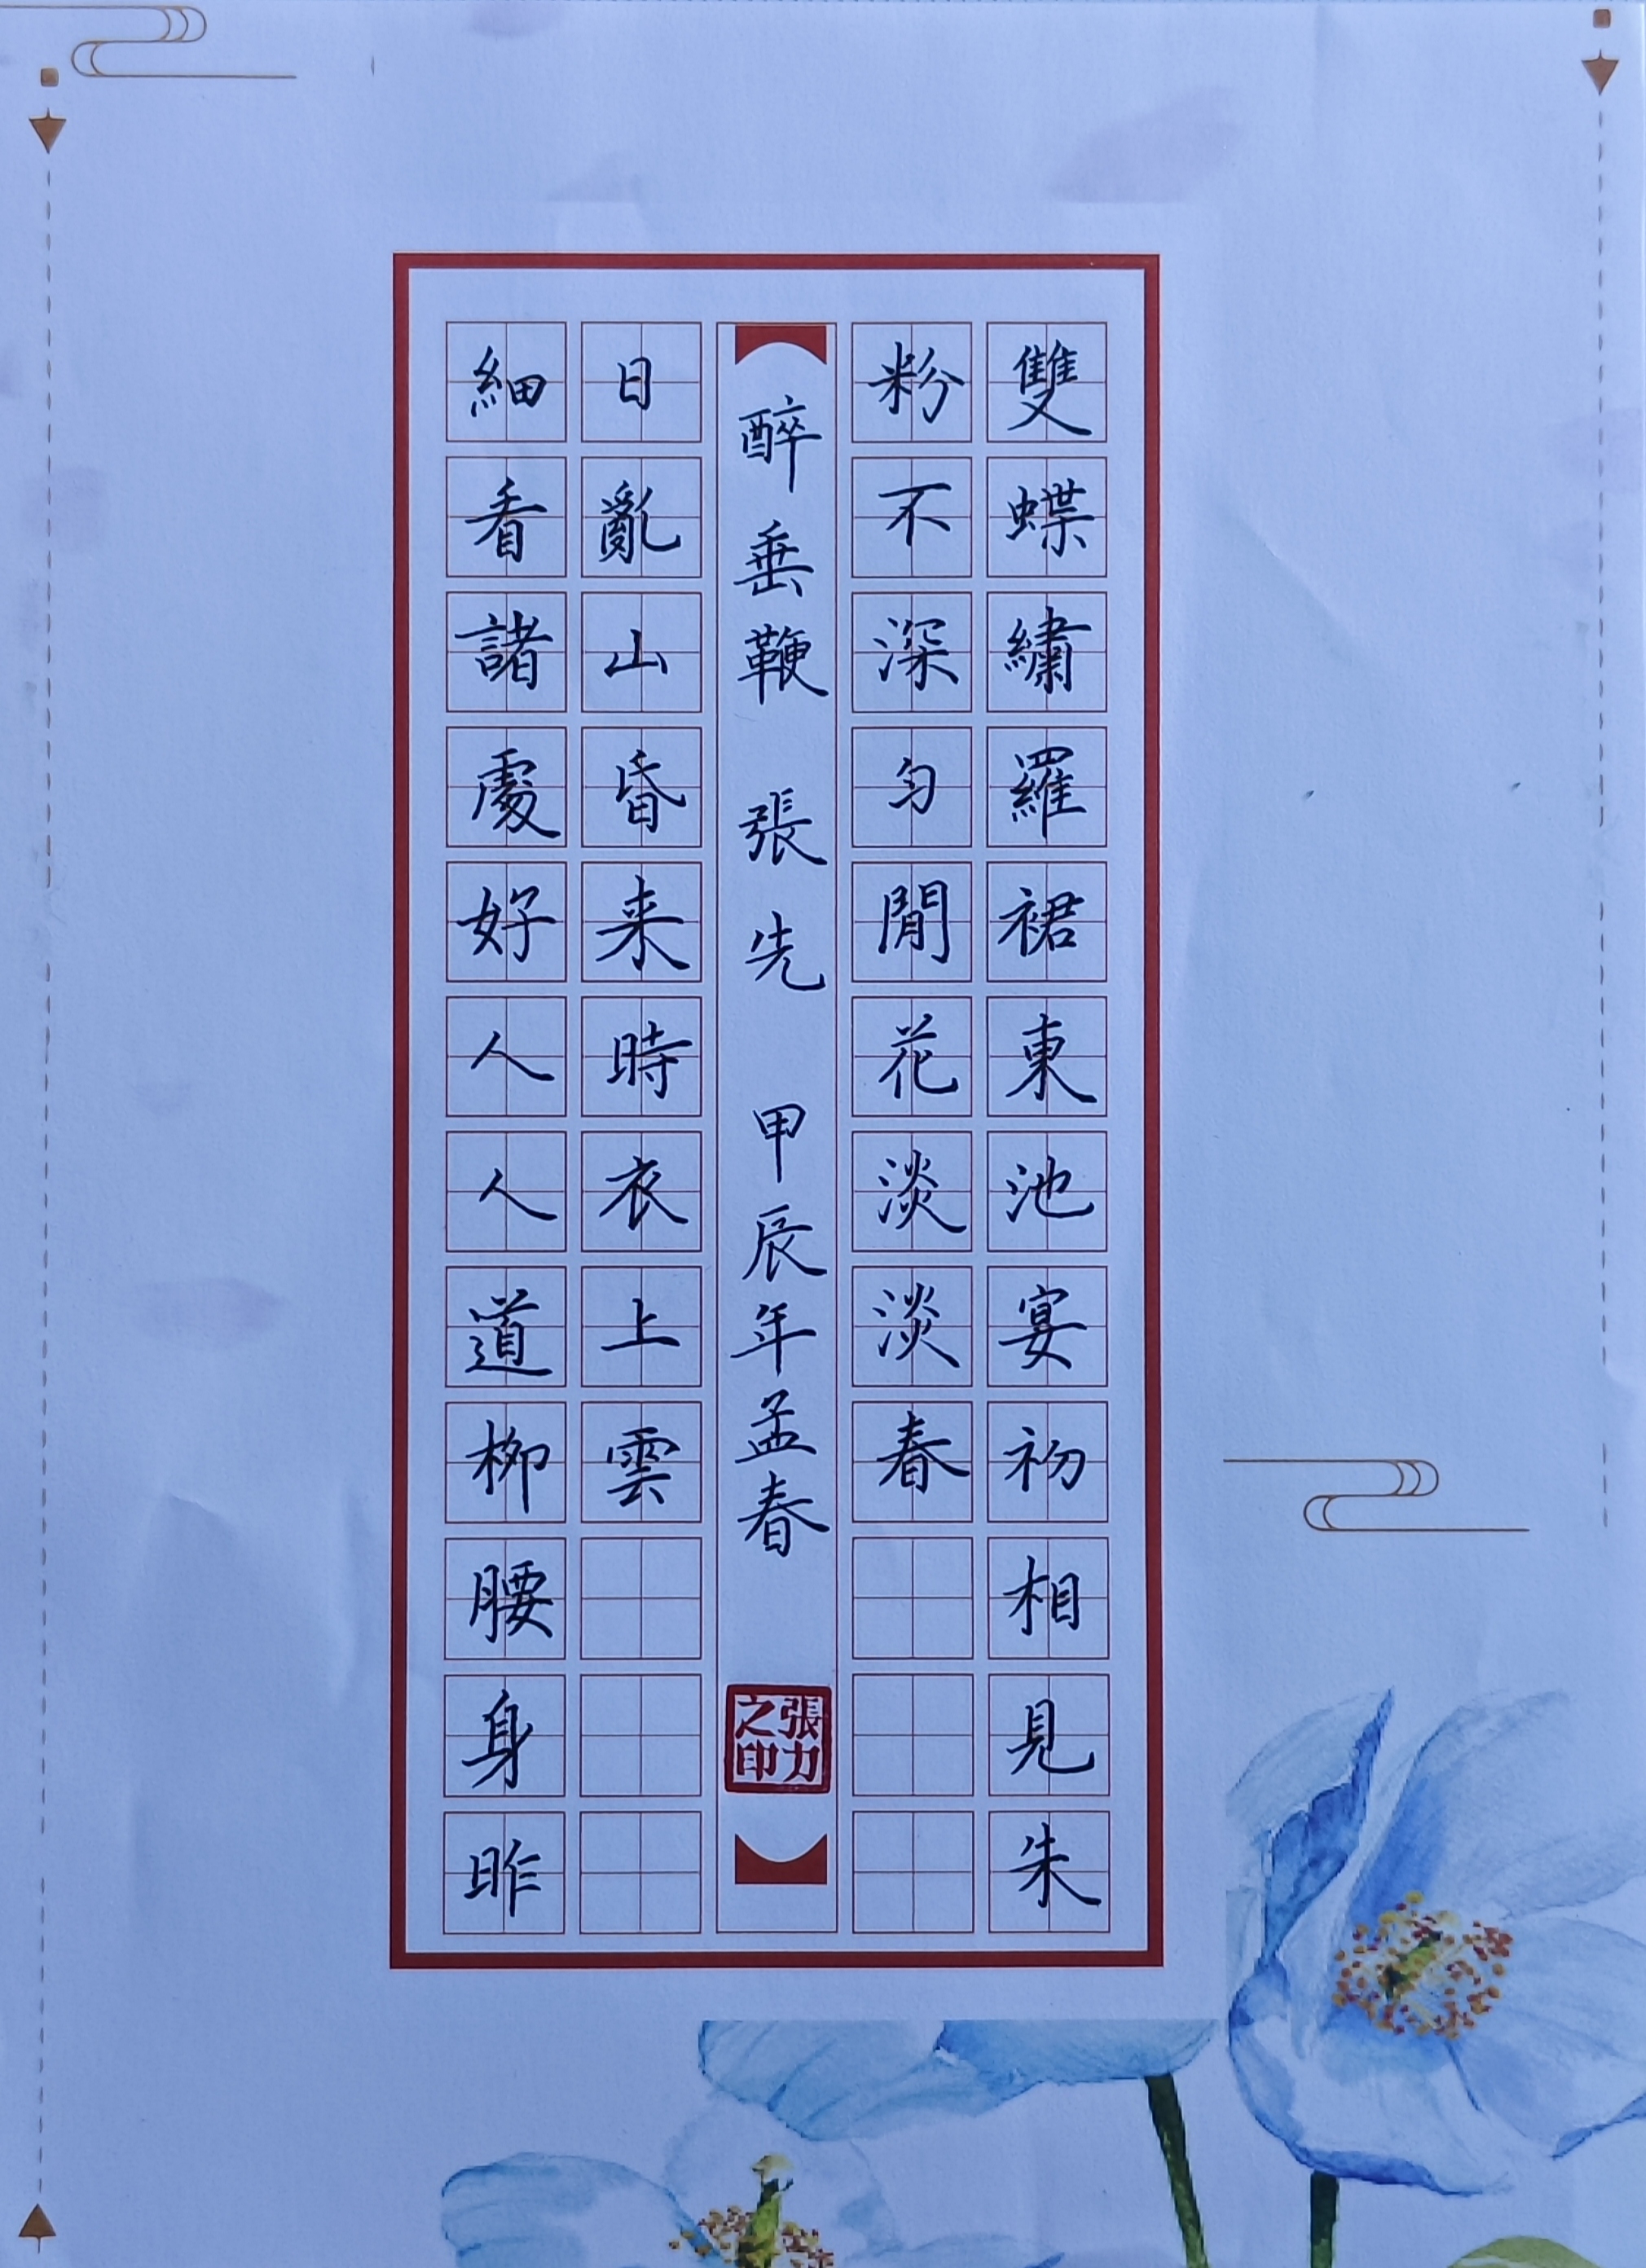 雙蝶繡羅裙東池宴初相見朱
粉不深匀閒花淡淡春
細看諸處好人人道柳腰身昨
日亂山昏来時衣上雲
醉垂鞭 張先 甲辰年孟春
張力之印